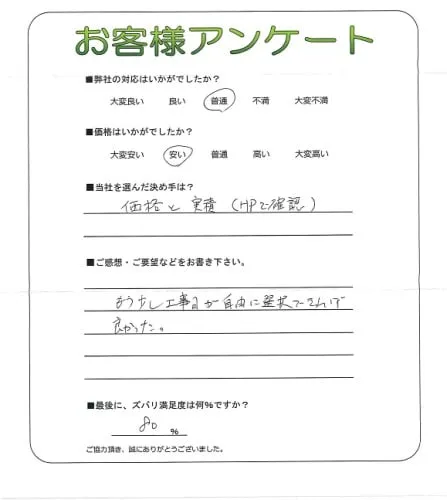 お客様アンケート
■弊社の対応はいかがでしたか？
大変良い 良い 普通 不満 大変不満
■価格はいかがでしたか？
大変安い 安い 普通 高い 大変高い
■当社を選んだ決め手は？
価格と実積（HPで確認）
■ご感想・ご要望などをお書き下さい。
もう少し工事日が自由に選択できれば
良かった。
■最後に、ズバリ満足度は何%ですか？
80 %
ご協力頂き、誠にありがとうございました。